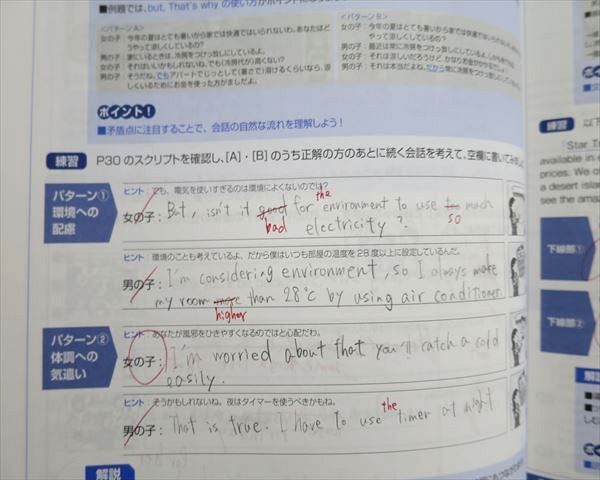 ■例題では、but, That's why の使い方がポイントになり
〈パターンA〉
女の子：今年の夏はとても暑いから家では快適ではいられないわ。あなたはど
うやって涼しくしているの?
男の子：家にいるときは、冷房をつけっ放しにしているよ。
女の子：それはいいかもしれないね。でも(冷房代が)高くない?
男の子：そうだね。でもアパートでじっとして(暑さで)溶けるくらいなら、涼
しくいるためにお金を使った方がましだよ。
〈パターンB〉
女の子：今年の夏はとても暑いから家では快適ではいられない
うやって涼しくしているの?
男の子：最近は常に冷房をつけっ放しにしているよ。
女の子：それは涼しいだろうけど、かなりお金がかかる
男の子：それは本当だよね。だから常に冷房をつけっ放し
ポイント!
■矛盾点に注目することで、会話の自然な流れを理解しよう!
練習 P30 のスクリプトを確認し、[A]・[B]のうち正解の方のあとに続く会話を考えて、空欄に書いてみ
パターン①
環境への
配慮
ヒント：でも、電気を使いすぎるのは環境によくないのでは?
the
女の子：But, isn't it good for environment to use too much
bad electricity? so
ヒント：環境のことも考えているよ、だから僕はいつも部屋の温度を28度以上に設定しているんだ。
男の子：I'm considering environment, so I always make
my room more than 28℃ by using air conditioner
higher
パターン②
体調への
気遣い
ヒント：あなたが風邪をひきやすくなるのではと心配だわ。
女の子：I'm worried about that you'll catch a cold
easily.
ヒント：そうかもしれないね。夜はタイマーを使うべきかもね。
the
男の子：That is true. I have to use timer at night
解説
練習
Star T
available in
prices. We o
a desert islan
see the amaz
下線部①
下線部②
解説